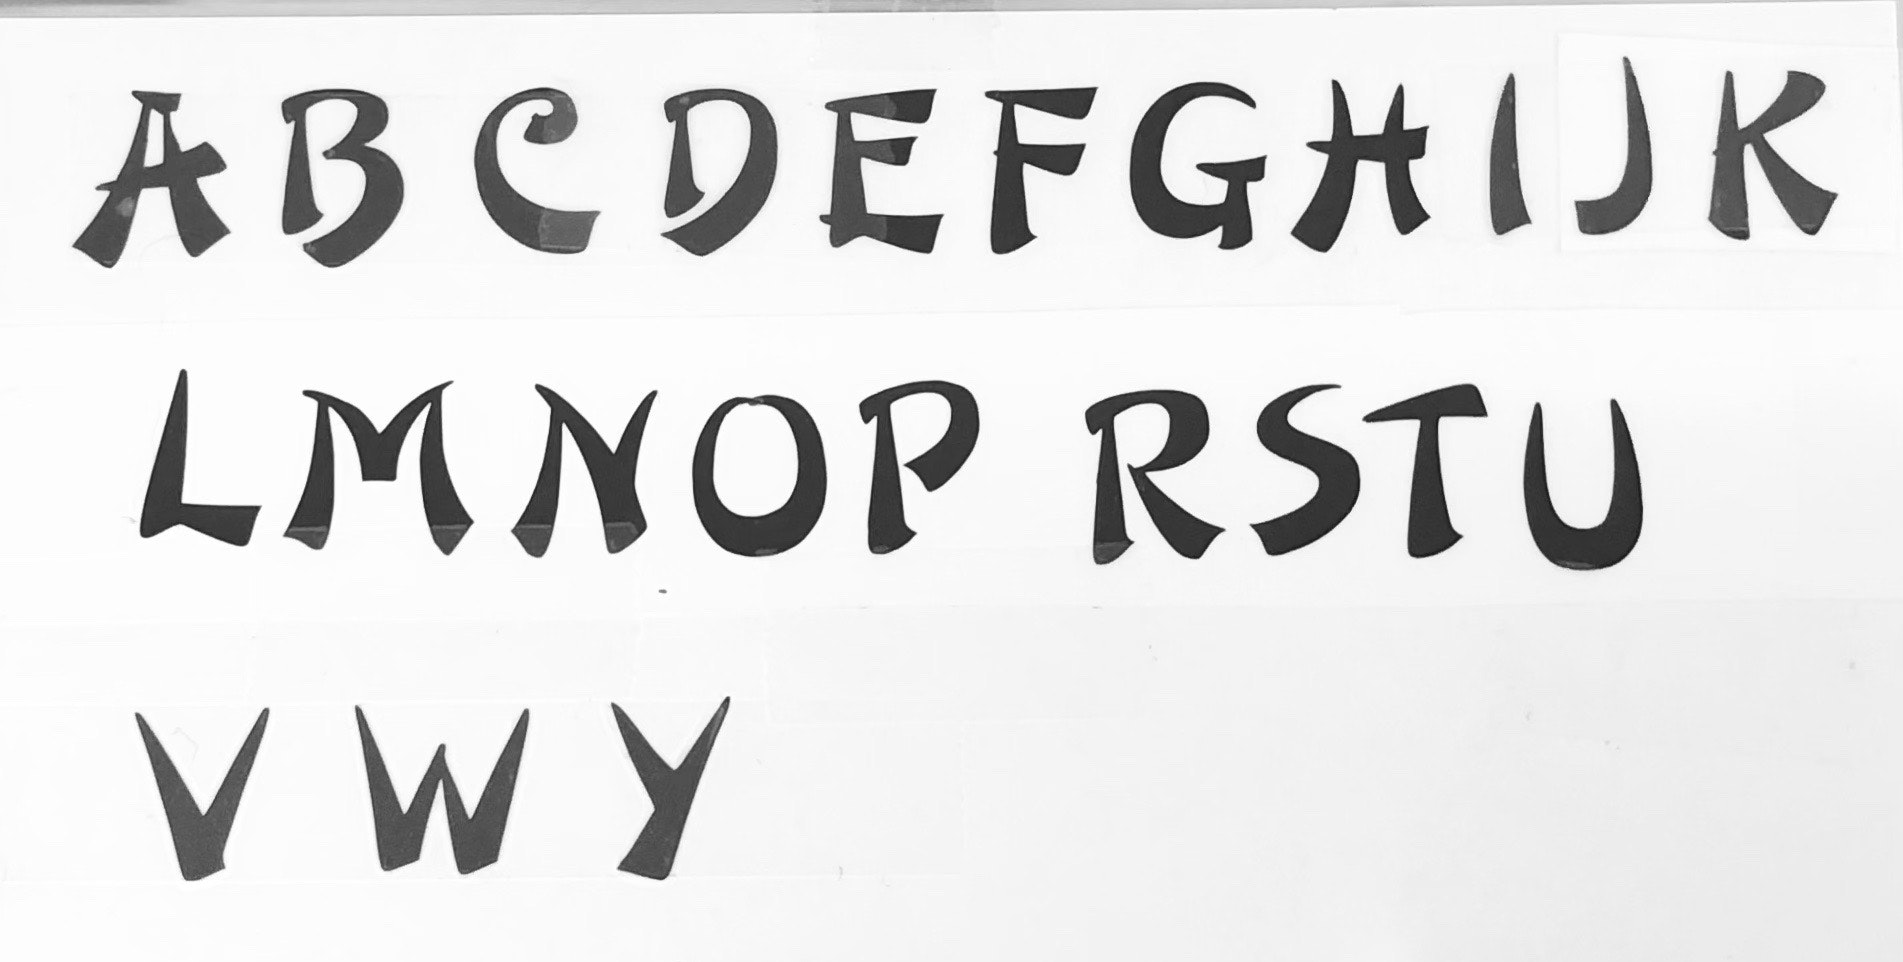 A B C D E F G H I J K
L M N O P R S T U
V W Y